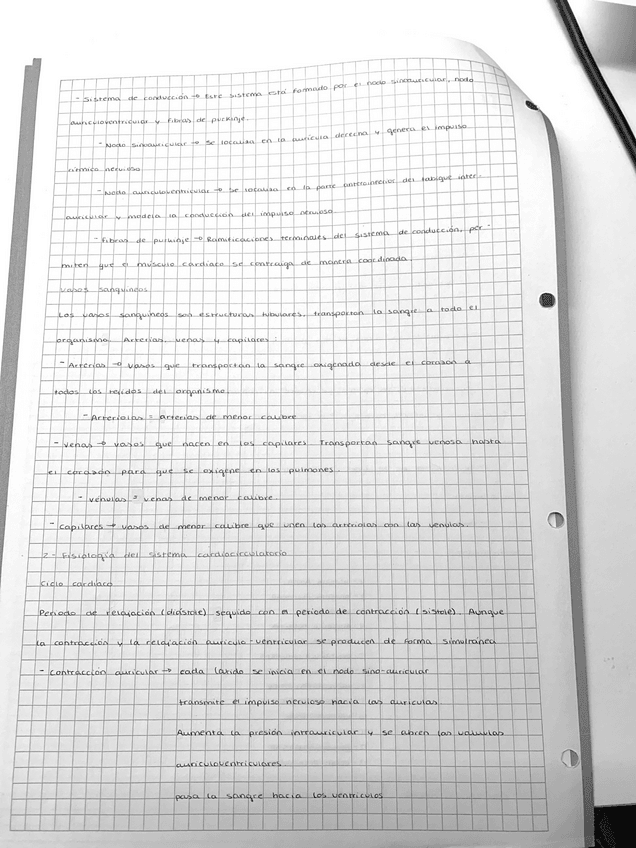 - Sistema de conducción → Este sistema está formado por el nodo sinoauricular, nodo
auriculoventricular y fibras de purkinje.
- Nodo sinoauricular → Se localiza en la aurícula derecha y genera el impulso
rítmico nervioso
- Nodo auriculoventricular → Se localiza en la parte anteroinferior del tabique inter-
auricular y modela la conducción del impulso nervioso
- Fibras de purkinje → Ramificaciones terminales del sistema de conducción, per-
miten que el músculo cardíaco se contraiga de manera coordinada.
Vasos sanguíneos
Los vasos sanguíneos son estructuras tubulares, transportan la sangre a todo el
organismo. Arterias, venas y capilares:
- Arterias → vasos que transportan la sangre oxigenada desde el corazón a
todos los tejidos del organismo.
- Arteriolas = arterias de menor calibre
- Venas → vasos que nacen en los capilares. Transportan sangre venosa hasta
el corazón para que se oxigene en los pulmones.
- Vénulas = venas de menor calibre
- Capilares → vasos de menor calibre que unen las arteriolas con las vénulas.
2- Fisiología del sistema cardiocirculatorio
Ciclo cardíaco
Periodo de relajación (diástole) seguido con el periodo de contracción (sístole). Aunque
la contracción y la relajación auriculo-ventricular se producen de forma simultánea
- Contracción auricular → cada latido se inicia en el nodo sino-auricular
transmite el impulso nervioso hacia las aurículas
Aumenta la presión intrauricular y se abren las valvulas
auriculoventriculares.
pasa la sangre hacia los ventrículos